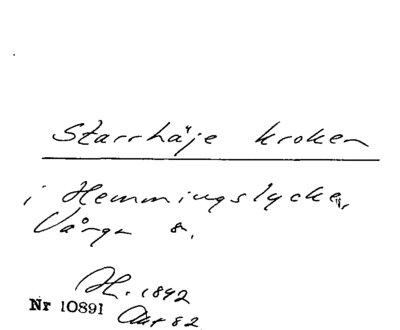 Starrhäje kroken
i Hemmingslycke,
Vånga s.
H. 1892
Nr 10891
82